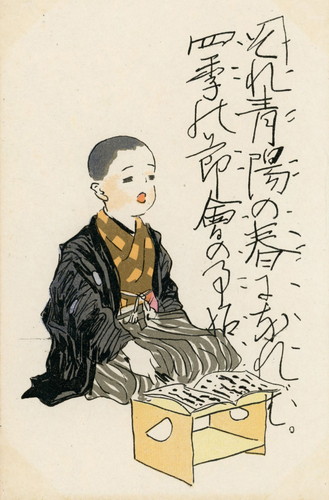 それ青陽の春になれば。
四季の節會の事始